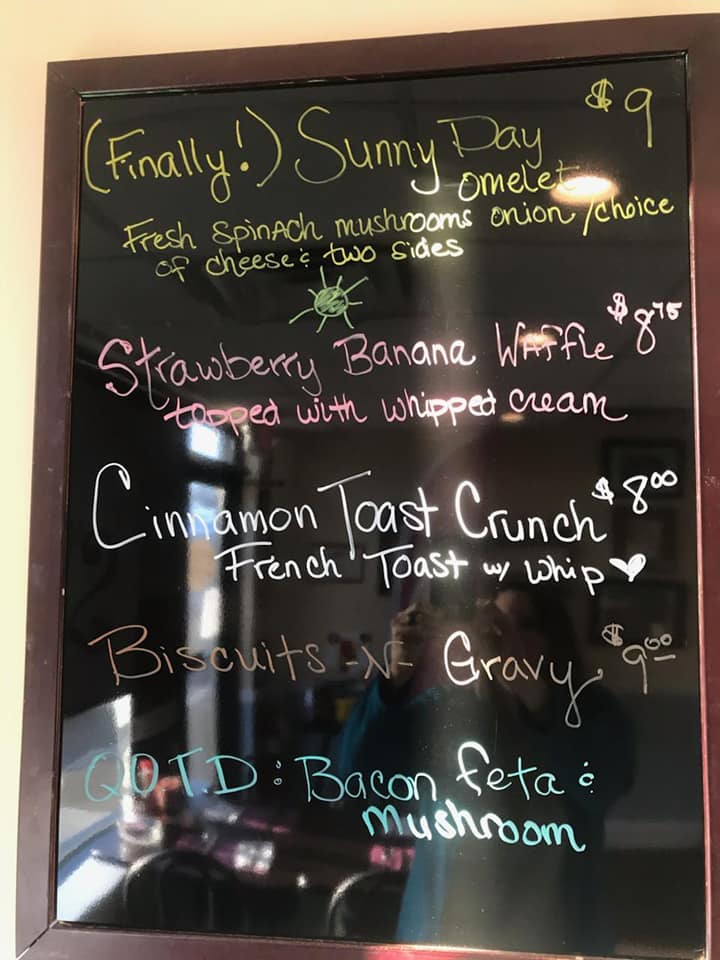 (Finally!) Sunny Day $9
omelet
Fresh Spinach mushrooms onion / choice
of cheese & two sides
Strawberry Banana Waffle $8.75
topped with whipped cream
Cinnamon Toast Crunch $8.00
French Toast w/ whip
Biscuits -N- Gravy $9.00
Q.O.T.D: Bacon feta &
mushroom